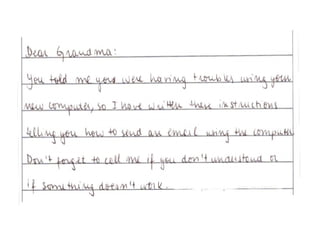 Dear Grandma:
You told me you were having troubles using your
new computer, so I have written these instructions
telling you how to send an email using the computer
Don't forget to call me if you don't understand or
if something doesn't work.